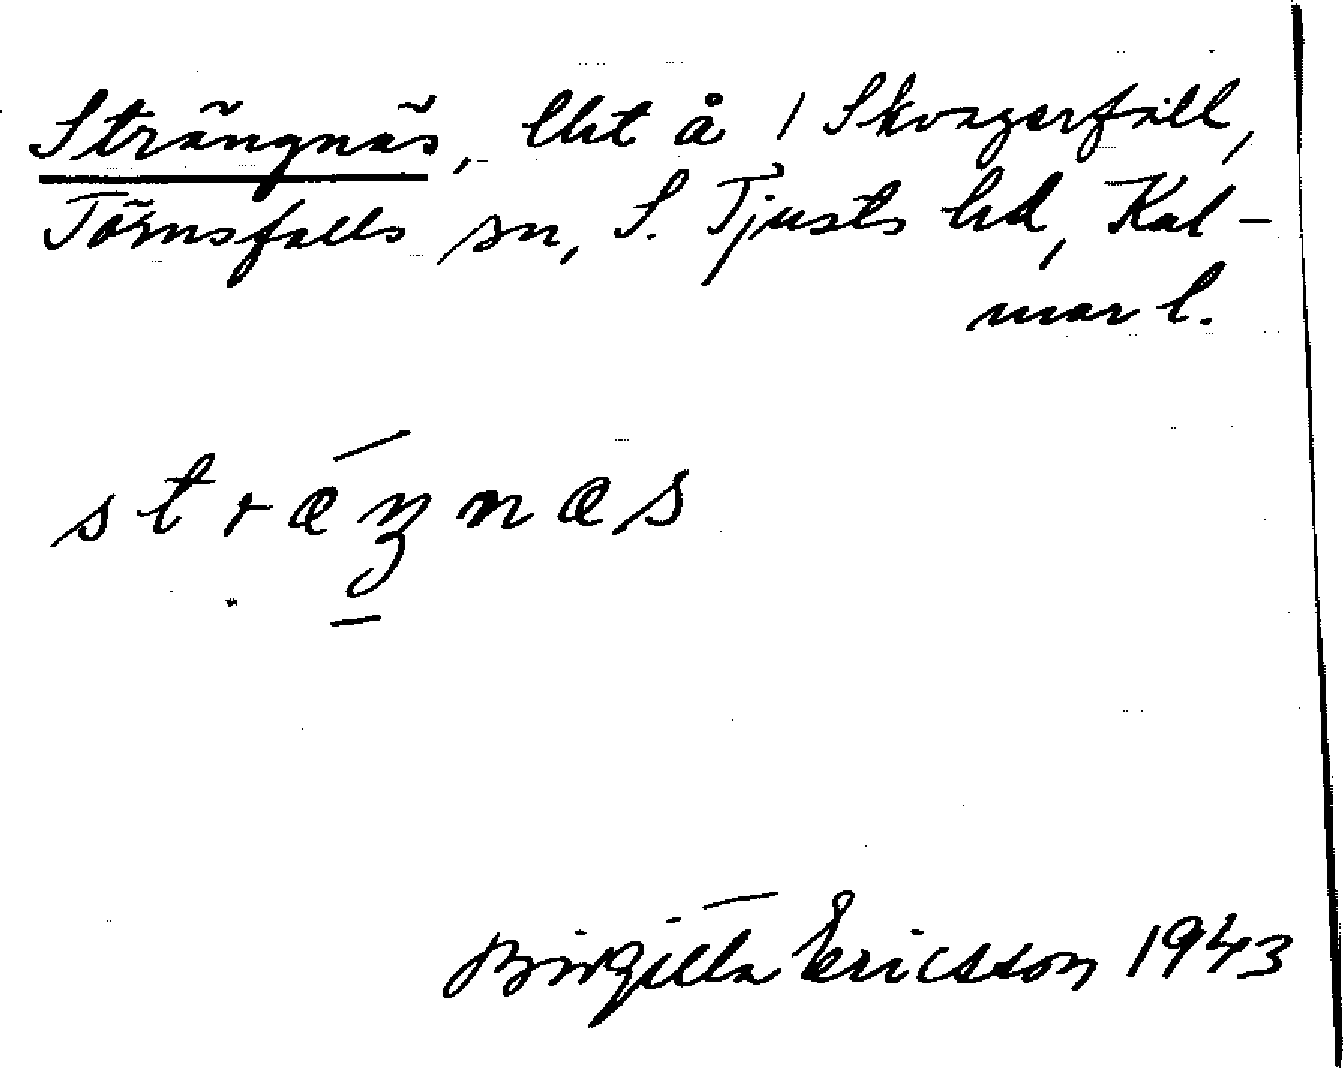 Strängnäs, lht å 1 Skvagerfall,
Törnsfalls sn, S. Tjusts hd, Kal-
mar l.
stræŋnæs
Birgitta Ericsson 1943